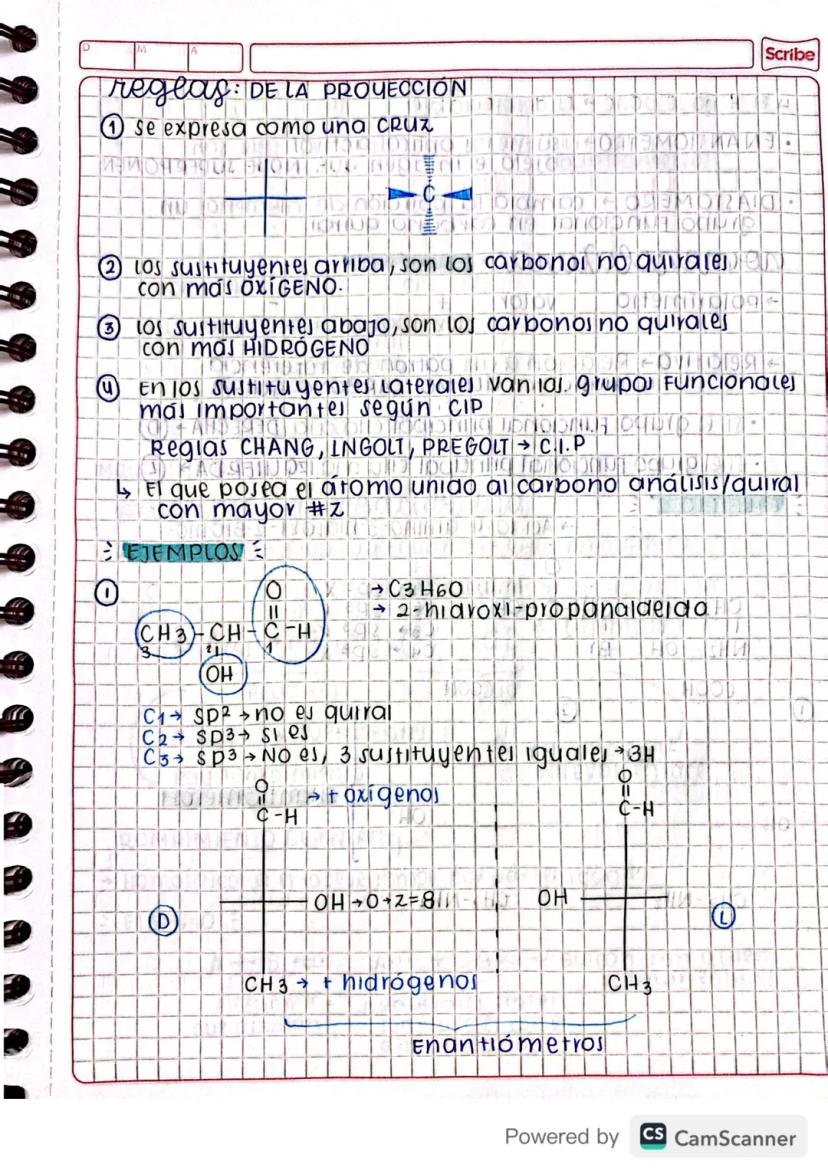 D M A
Scribe
reglas: DE LA PROYECCIÓN
① se expresa como una CRUZ
C
② los sustituyentes arriba, son los carbonos no quirales
con más OXÍGENO.
③ los sustituyentes abajo, son los carbonos no quirales
con más HIDRÓGENO
④ En los sustituyentes laterales van los grupos Funcionales
más importantes según CIP
Reglas CHANG, INGOLT, PREGOLT → C.I.P
↳ El que posea el átomo unido al carbono análisis/quiral
con mayor #Z
EJEMPLOS
① O → C3H6O
|| → 2-hidroxi-propanaldeido
CH3 - CH - C - H
3 2 1
OH
C1 → sp2 → no es quiral
C2 → sp3 → si es
C3 → sp3 → NO es, 3 sustituyentes iguales → 3H
O → + oxígenos O
|| ||
C - H C - H
OH → O → Z = 8 OH
D L
CH3 → + hidrógenos CH3
Enantiómetros
Powered by CS CamScanner